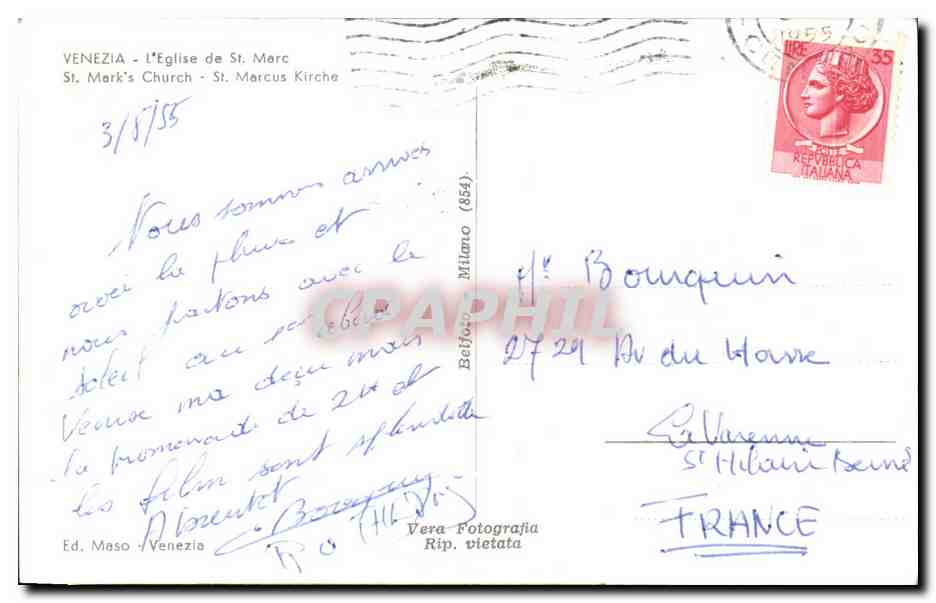 VENEZIA - L'Eglise de St. Marc
St. Mark's Church - St. Marcus Kirche
3/5/55
Nous sommes arrivés
avec la pluie et
nous partons avec le
soleil au
Venise ma déçu mais
la promenade de 2H et
les film sont splendide
A bientot
Bourquin
Ed. Maso - Venezia
Belfoto Milano (854)
Vera Fotografia
Rip. vietata
1955
LIRE 35
REPVBBLICA
ITALIANA
Mr Bourquin
2729 Av du Havre
La Varenne
St Hilaire
FRANCE
CPAPHIL